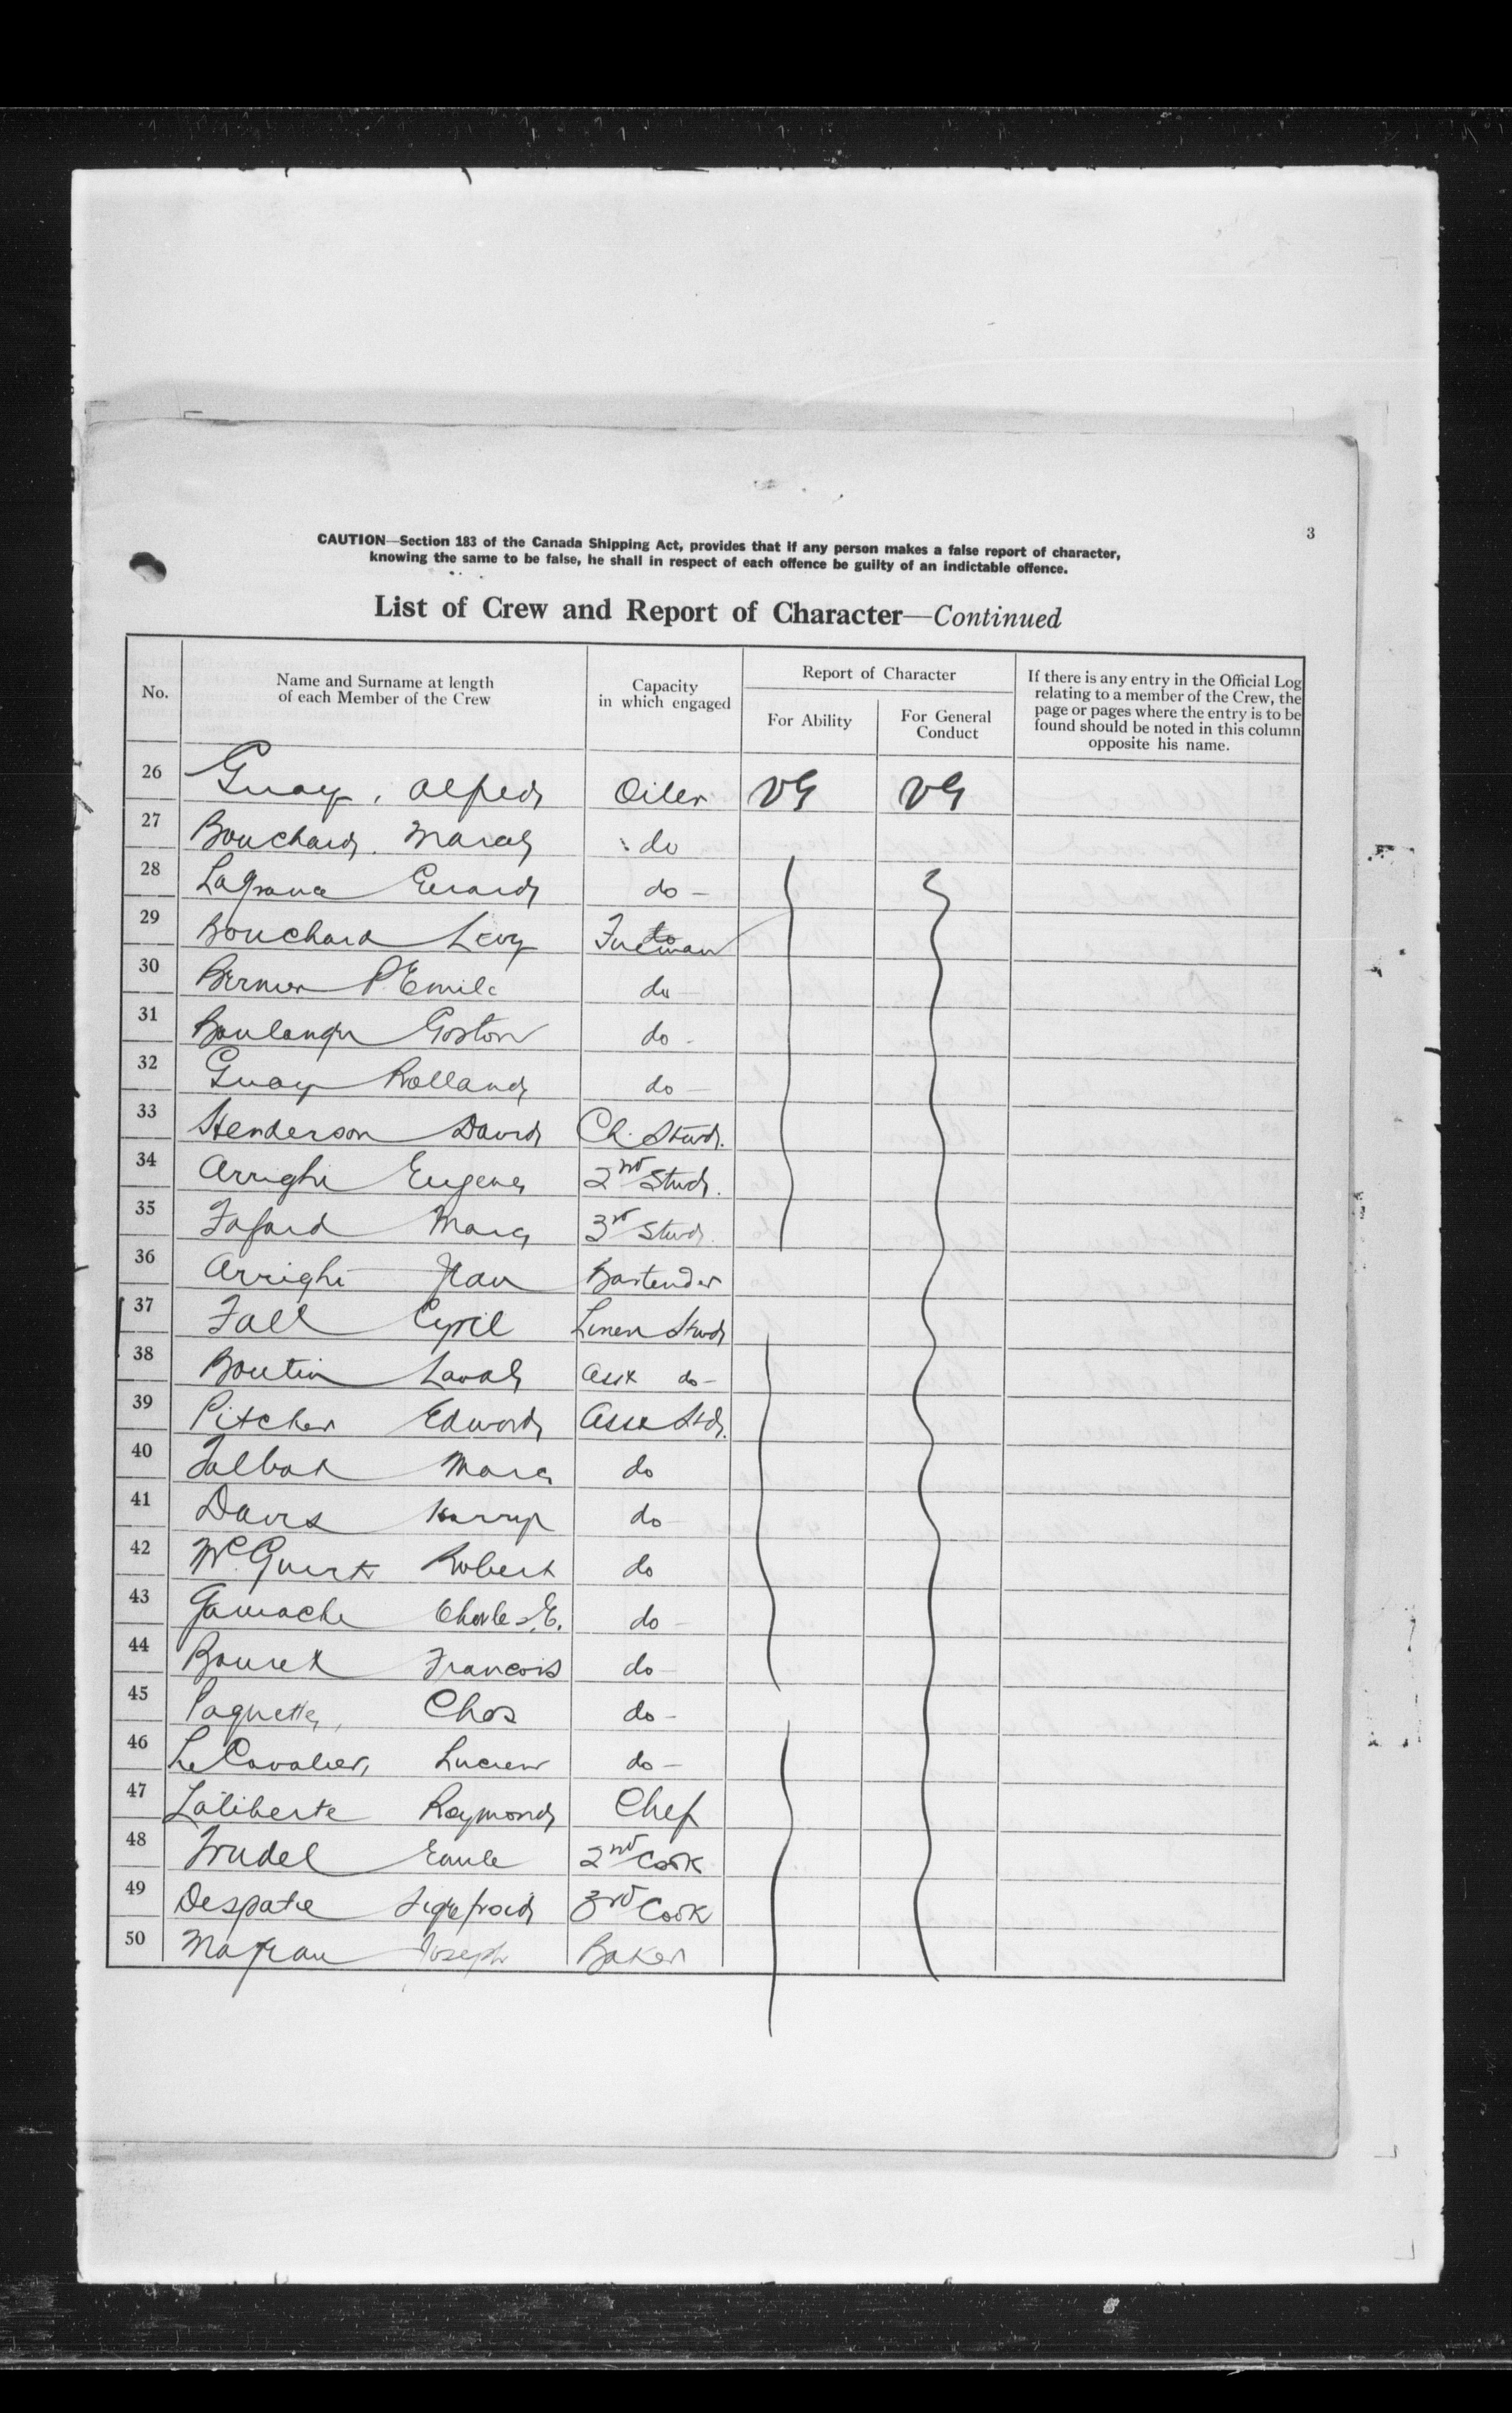 3
CAUTION—Section 183 of the Canada Shipping Act, provides that if any person makes a false report of character,
knowing the same to be false, he shall in respect of each offence be guilty of an indictable offence.
List of Crew and Report of Character—Continued
No. Name and Surname at length of each Member of the Crew Capacity in which engaged Report of Character For Ability For General Conduct If there is any entry in the Official Log relating to a member of the Crew, the page or pages where the entry is to be found should be noted in this column opposite his name.
26 Guay, Alfred Oiler VG VG
27 Bouchard, Marcel do
28 Lagrance do -
29 Bouchard Levy
30 Bernier P. Emile do
31 Boulanger Goston do -
32 Guay Rolland do -
33 Henderson David Ch. Stwd.
34 Arrighi Eugene 2nd Stwd.
35 Fafard Marc 3rd Stwd.
36 Arrighi Jean Bartender
37 Fall Cyril Linen Stwd
38 Boutin Laval Asst do -
39 Pitcher Edward Asst Std.
40 Talbot Marc do
41 Davis Harry do -
42 McGuirk Robert do
43 Gamache Charles E. do -
44 Francois do -
45 Paquette, Chas do -
46 Le Cavalier, Lucien do -
47 Laliberte Raymond Chef
48 Trudel Emile 2nd Cook
49 Despatie Sigefroid 3rd Cook
50 Joseph Baker